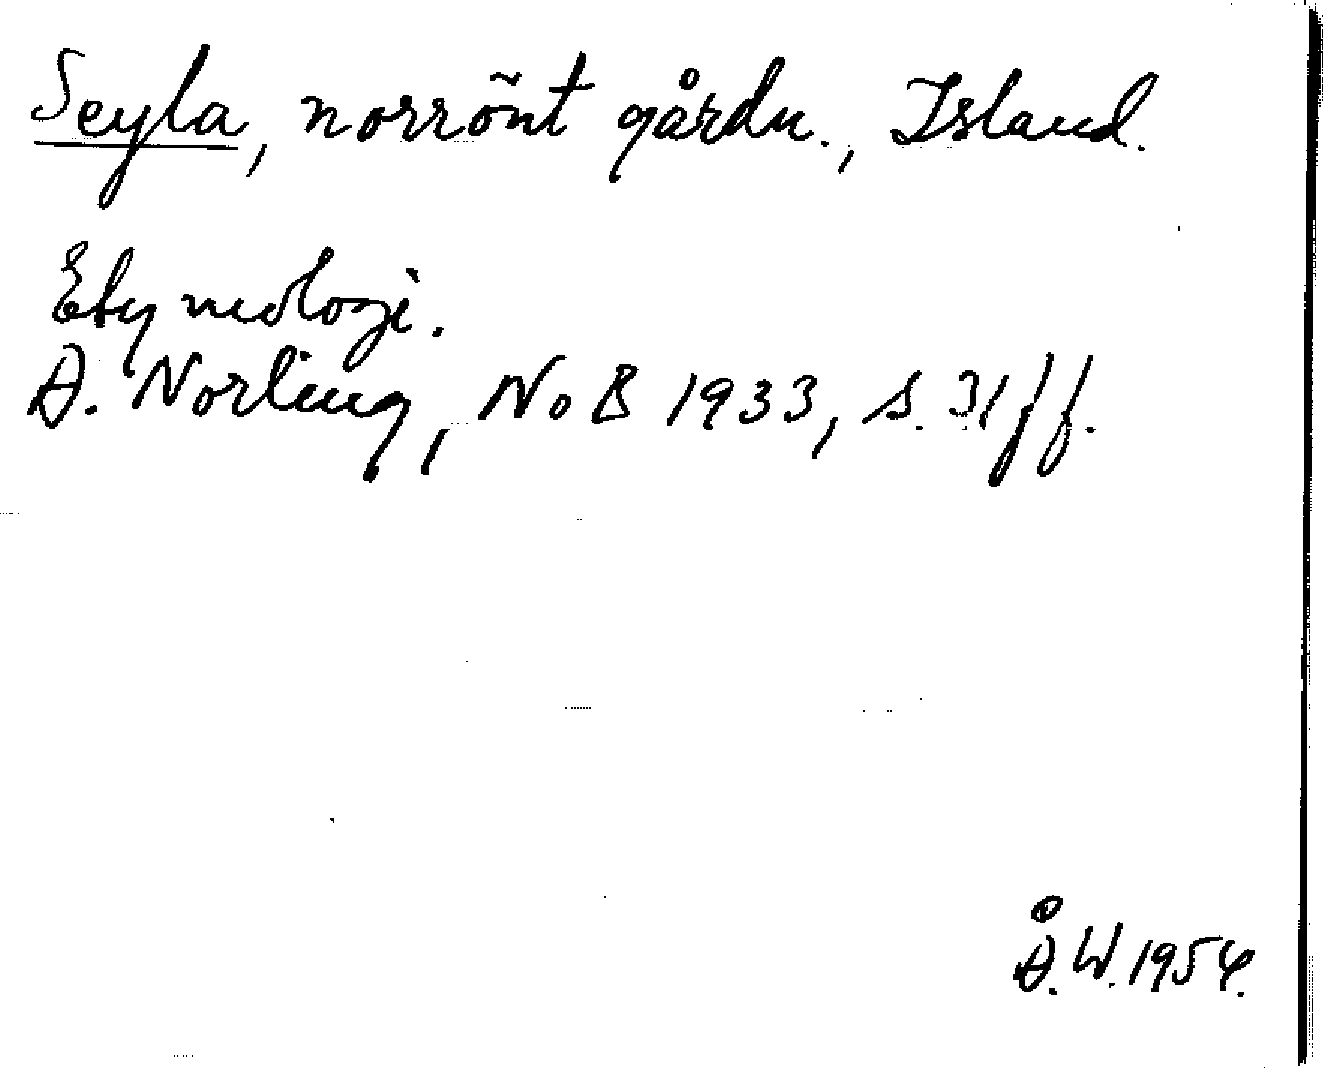 Seyla, norrönt gårdn., Island.
Etymologi.
A. Norling, NoB 1933, s. 31 ff.
Å. W. 1954.